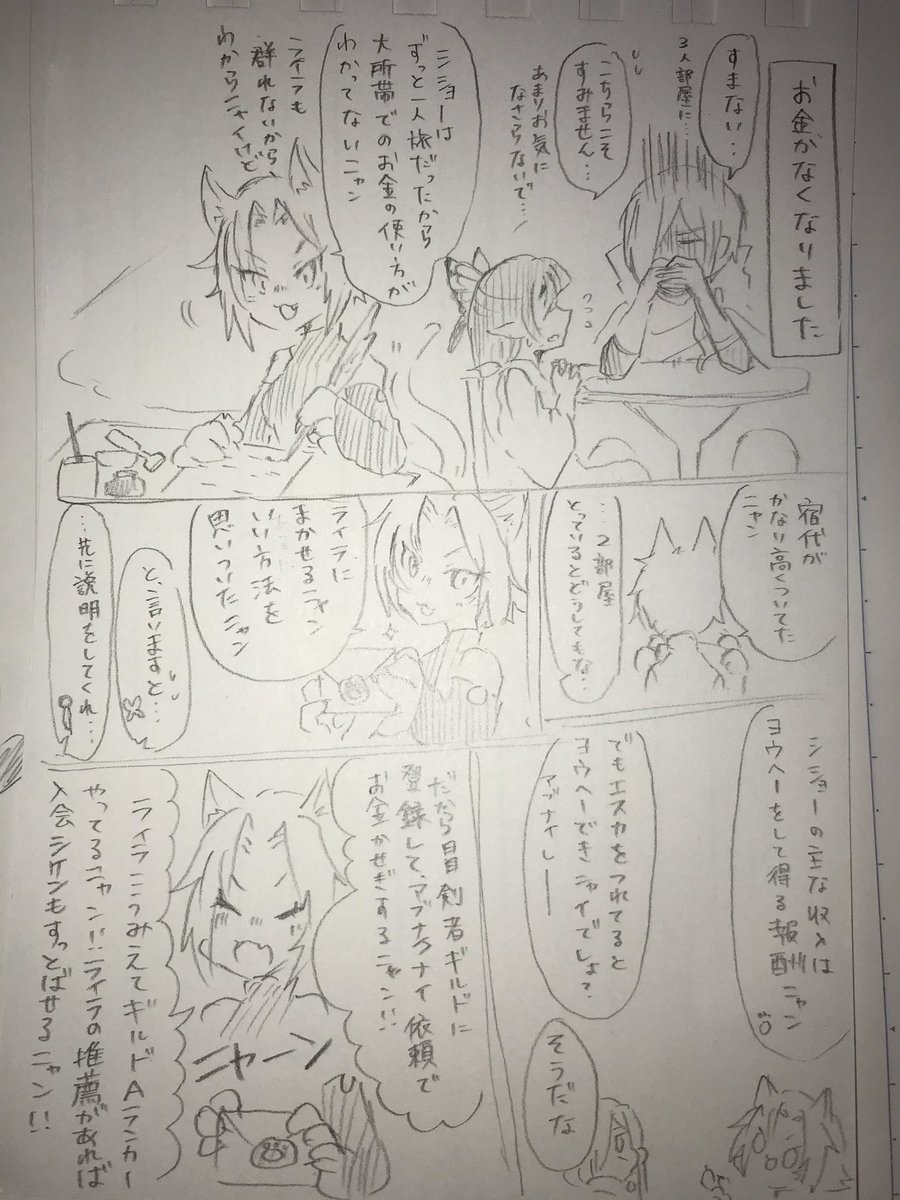 お金がなくなりました
すまない‥
3人部屋に…
こちらこそ
すみません…
あまりお気に
なさらないで…
シショーは
ずっと一人旅だったから
大所帯でのお金の使い方が
わかってないニャン
ライラも
群れないから、
わからニャイけど
宿代が
かなり高くついてた
ニャン
…2部屋
とっているとどうしてもな…
ライラに
まかせるニャン
いい方法を
思いついたニャン
と、言いますと…
…先に説明をしてくれ…
シショーの主な収入は
ヨウヘーをして得る報酬ニャン
でもエスカをつれてると
ヨウヘーできニャイでしょ?
アブナイしー
そうだな
だから冒剣者ギルドに
登録して、アブナクナイ依頼で
お金かせぎするニャン!!
ニャーン
ライラこうみえてギルドAランカー
やってるニャン!!ライラの推薦があれば
入会シケンもすっとばせるニャン!!